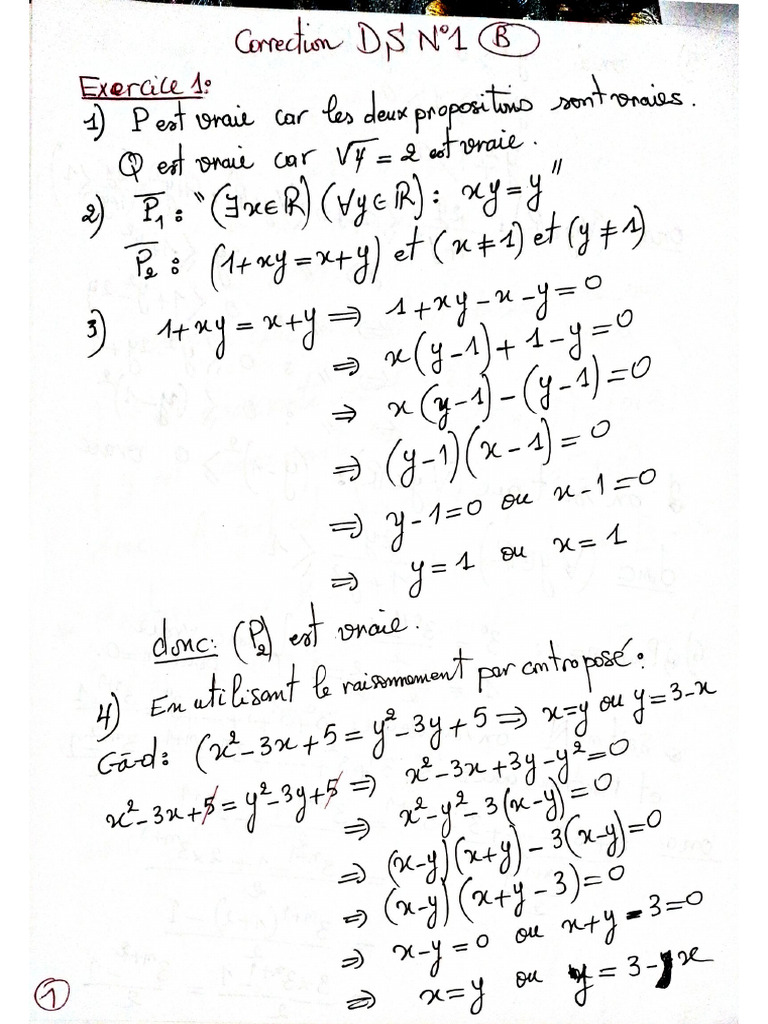 Correction DS N°1 (B)
Exercice 1:
1) P est vraie car les deux propositions sont vraies.
Q est vraie car √4 = 2 est vraie.
2) P̅₁ : "(∃x∈ℝ)(∀y∈ℝ): xy = y"
P̅₂ : (1+xy = x+y) et (x ≠ 1) et (y ≠ 1)
3) 1+xy = x+y ⇒ 1+xy-x-y=0
⇒ x(y-1)+1-y=0
⇒ x(y-1)-(y-1)=0
⇒ (y-1)(x-1)=0
⇒ y-1=0 ou x-1=0
⇒ y=1 ou x=1
donc: (P₂) est vraie.
4) En utilisant le raisonnement par contraposé:
Cà-d: (x²-3x+5 = y²-3y+5 ⇒ x=y ou y=3-x
x²-3x+5 = y²-3y+5 ⇒ x²-3x+3y-y²=0
⇒ x²-y²-3(x-y)=0
⇒ (x-y)(x+y)-3(x-y)=0
⇒ (x-y)(x+y-3)=0
⇒ x-y=0 ou x+y-3=0
⇒ x=y ou y=3-x
1